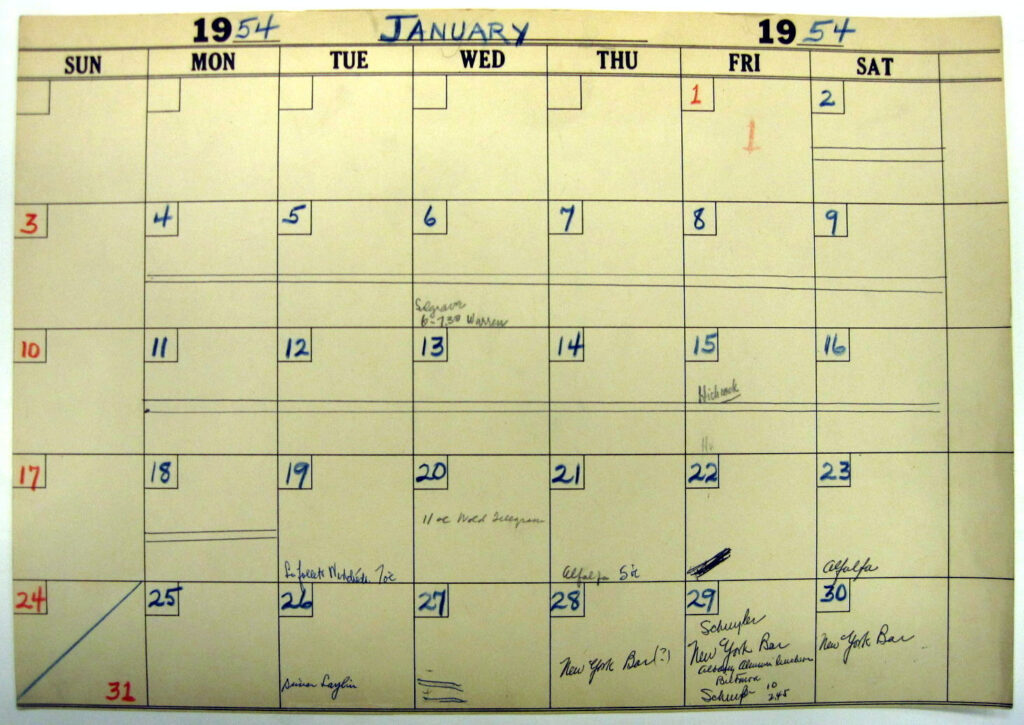 1954 JANUARY 1954
SUN MON TUE WED THU FRI SAT
1 2
1
3 4 5 6 7 8 9
6-7:30 Warren
10 11 12 13 14 15 16
17 18 19 20 21 22 23
11 oc World Telegram
Alfalfa
Alfalfa
24 25 26 27 28 29 30
31
Schuyler
New York Bar (?)
New York Bar
New York Bar
Albany Alumni luncheon
Biltmore
10
2:45